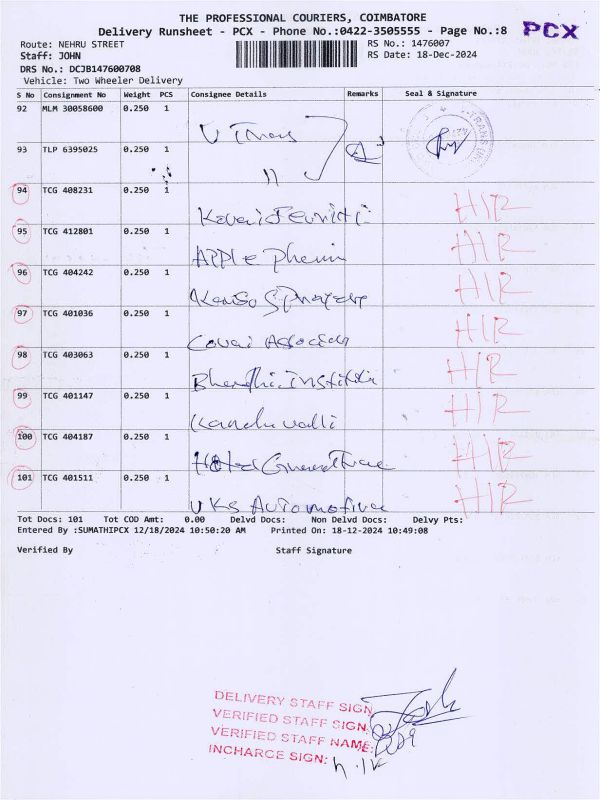 THE PROFESSIONAL COURIERS, COIMBATORE
Delivery Runsheet - PCX - Phone No.:0422-3505555 - Page No.:8
PCX
Route: NEHRU STREET
RS No.: 1476007
Staff: JOHN
RS Date: 18-Dec-2024
DRS No.: DCJB147600708
Vehicle: Two Wheeler Delivery
S No Consignment No Weight PCS Consignee Details Remarks Seal & Signature
92 MLM 30058600 0.250 1
93 TLP 6395025 0.250 1 "
94 TCG 408231 0.250 1 HIR
95 TCG 412801 0.250 1 APPLE HIR
96 TCG 404242 0.250 1 HIR
97 TCG 401036 0.250 1 HIR
98 TCG 403063 0.250 1 HIR
99 TCG 401147 0.250 1 HIR
100 TCG 404187 0.250 1 Hotel HIR
101 TCG 401511 0.250 1 VKS Automotive HIR
Tot Docs: 101 Tot COD Amt: 0.00 Delvd Docs: Non Delvd Docs: Delvy Pts:
Entered By :SUMATHIPCX 12/18/2024 10:50:20 AM Printed On: 18-12-2024 10:49:08
Verified By Staff Signature
DELIVERY STAFF SIGN:
VERIFIED STAFF SIGN:
VERIFIED STAFF NAME:
INCHARGE SIGN: